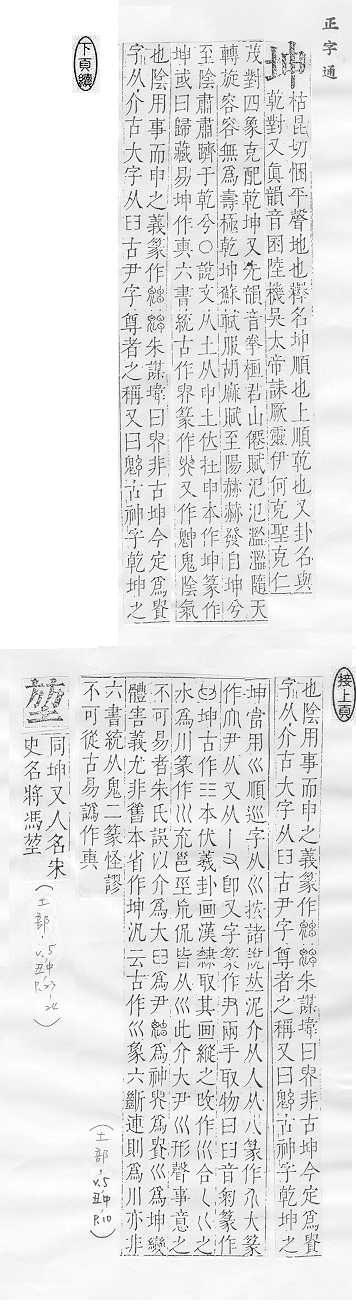 正字通
坤
枯昆切悃平聲地也釋名坤順也上順乾也又卦名與
乾對又眞韻音困陸機吳太帝誄厥靈伊何克聖克仁
茂對四象克配乾坤又先韻音拳桓君山僊賦氾氾濫濫隨天
轉旋容容無爲壽極乾坤蘇軾服胡麻賦至陽赫赫發自坤兮
至陰肅肅躋于乾兮○說文从土从申土位在申本作坤篆作
坤或曰歸藏易坤作㒷六書統古作㚑篆作又作鬼陰氣
也陰用事而申之義篆作朱謀㙔曰非古坤今定爲
字从介古大字从𦥑古尹字尊者之稱又曰古神字乾坤之
下頁續
接上頁
也陰用事而申之義篆作朱謀㙔曰非古坤今定爲
字从介古大字从𦥑古尹字尊者之稱又曰古神字乾坤之
坤當用巛順巡字从巛按諸說迂泥介从人从八篆作大篆
作尹从又从丨卽又字篆作兩手取物曰𦥑音匊篆作
坤古作☷本伏羲卦画漢隸取其画縱之改作巛合く巜之
水爲川篆作巛㐬邕巠巟侃皆从巛此介大尹巛形聲事意之
不可易者朱氏誤以介爲大𦥑爲尹爲神爲巛爲坤變
體害義尤非舊本省作坤汎云古作巛象六斷連則爲川亦非
六書統从鬼二篆怪謬
不可從古易譌作㒷
堃
同坤又人名宋
史名將馮堃
（土部，v.5
丑中
P.23
（土部，v.5
丑中
P.10）